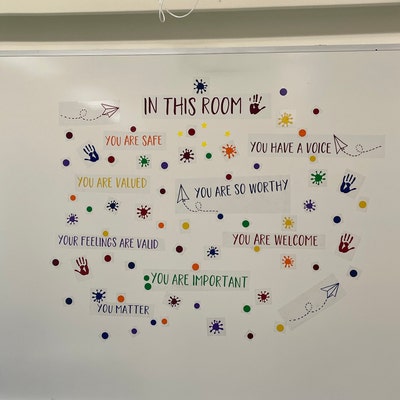 IN THIS ROOM
YOU ARE SAFE
YOU HAVE A VOICE
YOU ARE VALUED
YOU ARE SO WORTHY
YOUR FEELINGS ARE VALID
YOU ARE WELCOME
YOU ARE IMPORTANT
YOU MATTER